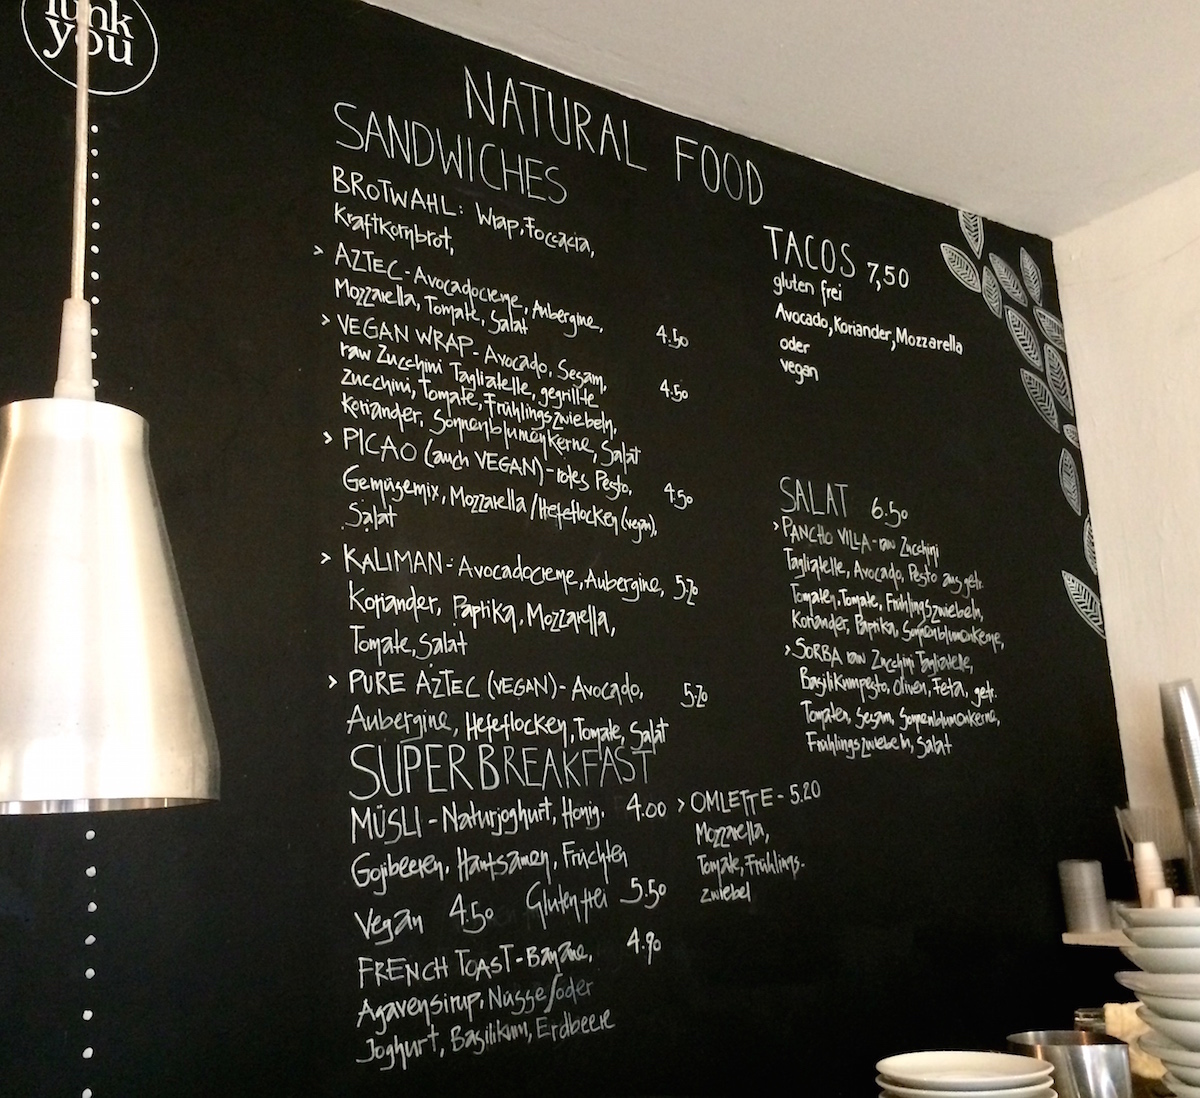 funk
you
NATURAL FOOD
SANDWICHES
BROTWAHL: Wrap, Foccacia,
Kraftkornbrot,
> AZTEC - Avocadocreme, Aubergine,
Mozzarella, Tomate, Salat
4.50
> VEGAN WRAP - Avocado, Sesam,
raw Zucchini Tagliatelle, gegrillte
4.50
Zucchini, Tomate, Frühlingszwiebeln,
Koriander, Sonnenblumenkerne, Salat
> PICAO (auch VEGAN) - rotes Pesto,
4.50
Gemüsemix, Mozzarella / Hefeflocken (vegan),
Salat
> KALIMAN - Avocadocreme, Aubergine, 5.20
Koriander, Paprika, Mozzarella,
Tomate, Salat
> PURE AZTEC (VEGAN) - Avocado, 5.20
Aubergine, Hefeflocken, Tomate, Salat
SUPERBREAKFAST
MÜSLI - Naturjoghurt, Honig, 4.00
Gojibeeren, Hanfsamen, Früchten
Vegan 4.50 Glutenfrei 5.50
FRENCH TOAST - Banane, 4.90
Agavensirup, Nüsse/oder
Joghurt, Basilikum, Erdbeere
> OMLETTE - 5.20
Mozzarella,
Tomate, Frühlings-
zwiebel
TACOS 7,50
gluten frei
Avocado, Koriander, Mozzarella
oder
vegan
SALAT 6.50
> PANCHO VILLA - raw Zucchini
Tagliatelle, Avocado, Pesto aus getr.
Tomaten, Tomate, Frühlingszwiebeln,
Koriander, Paprika, Sonnenblumenkerne,
> SORBA raw Zucchini Tagliatelle,
Basilikumpesto, Oliven, Feta, getr.
Tomaten, Sesam, Sonnenblumenkerne,
Frühlingszwiebeln, Salat